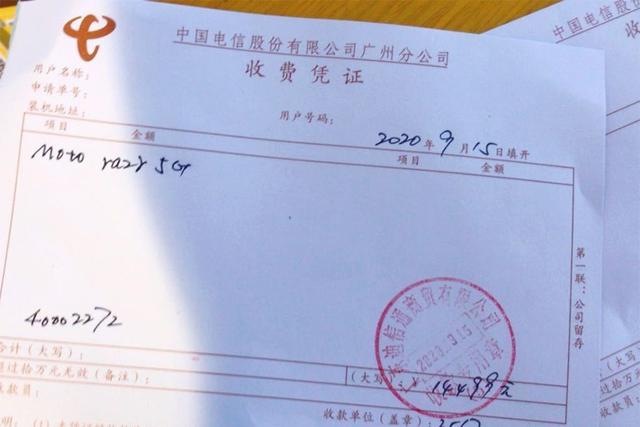 中国电信股份有限公司广州分公司
收费凭证
用户名称:
申请单号:
装机地址:
用户号码:
2020年9月15日填开
项目 金额 项目 金额
Moto razr 5G
第一联:公司留存
40002272
合计(大写):
过拾万元无效(备注):
(大写 14499元
收款员:
收款单位(盖章):